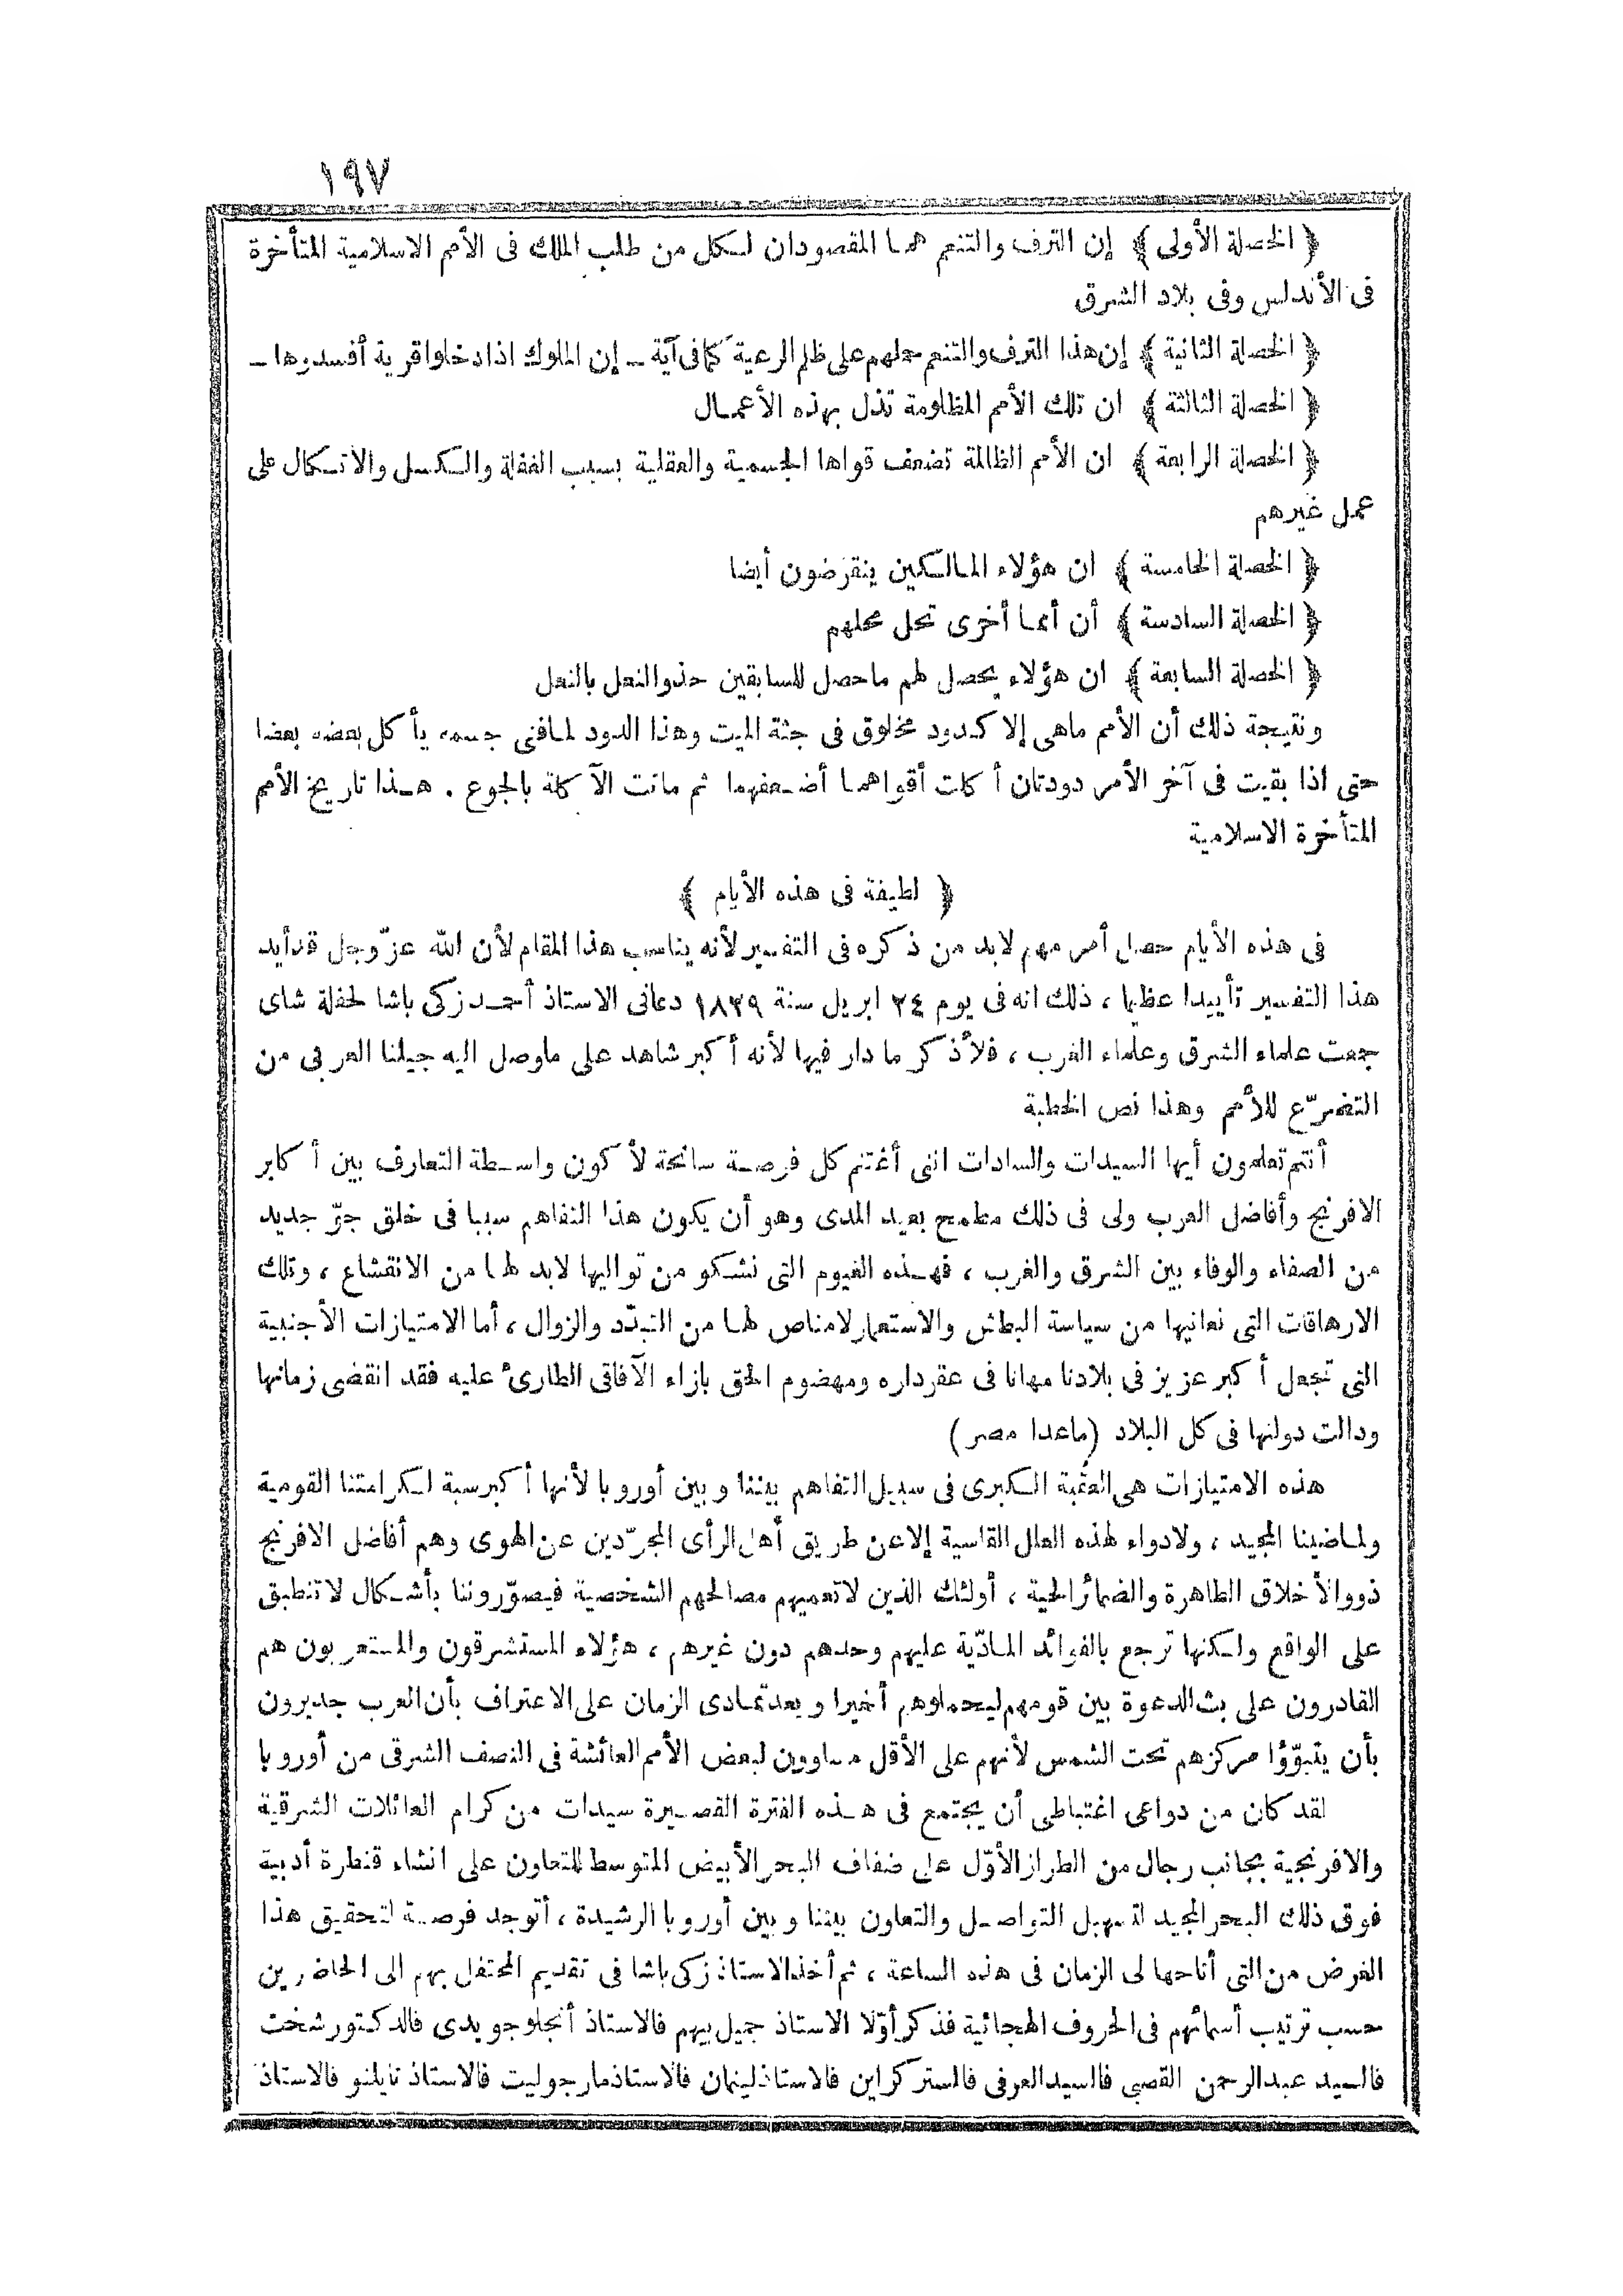 ١٩٧
﴿ الخصلة الأولى ﴾ إن الترف والتنعم هما المقصودان لكل من طلب الملك فى الأمم الاسلامية المتأخرة
فى الأندلس وفى بلاد الشرق
﴿ الخصلة الثانية ﴾ إن هذا الترف والتنعم حملهم على ظلم الرعية كما فى آية ـ إن الملوك اذا دخلوا قرية أفسدوها ـ
﴿ الخصلة الثالثة ﴾ ان تلك الأمم المظلومة تذل بهذه الأعمال
﴿ الخصلة الرابعة ﴾ ان الأمم الظالمة تضعف قواها الجسمية والعقلية بسبب الغفلة والكسل والاتكال على
عمل غيرهم
﴿ الخصلة الخامسة ﴾ ان هؤلاء المالكين ينقرضون أيضا
﴿ الخصلة السادسة ﴾ أن أمما أخرى تحل محلهم
﴿ الخصلة السابعة ﴾ ان هؤلاء يحصل لهم ماحصل للسابقين حذو النعل بالنعل
ونتيجة ذلك أن الأمم ماهى إلا كدود مخلوق فى جثة الميت وهذا الدود لما فنى جسمه يأكل بعضه بعضا
حتى اذا بقيت فى آخر الأمر دودتان أكلت أقواهما أضعفهما ثم ماتت الآكلة بالجوع . هذا تاريخ الأمم
المتأخرة الاسلامية
﴿ لطيفة فى هذه الأيام ﴾
فى هذه الأيام حصل أمر مهم لابد من ذكره فى التفسير لأنه يناسب هذا المقام لأن الله عزّ وجل قد أيد
هذا التفسير تأييدا عظيما ، ذلك انه فى يوم ٢٤ ابريل سنة ١٨٣٩ دعانى الاستاذ أحمد زكى باشا لحفلة شاى
جمعت علماء الشرق وعلماء الغرب ، فلأذكر ما دار فيها لأنه أكبر شاهد على ماوصل اليه جيلنا العربى من
التضرّع للأمم وهذا نص الخطبة
أنتم تعلمون أيها السيدات والسادات اننى أغتنم كل فرصة سانحة لأكون واسطة التعارف بين أكابر
الافرنج وأفاضل العرب ولى فى ذلك مطمح بعيد المدى وهو أن يكون هذا التفاهم سببا فى خلق جوّ جديد
من الصفاء والوفاء بين الشرق والغرب ، فهذه الغيوم التى نشكو من تواليها لابد لها من الانقشاع ، وتلك
الارهاقات التى نعانيها من سياسة البطش والاستعمار لامناص لها من التبدّد والزوال ، أما الامتيازات الأجنبية
التى تجعل أكبر عزيز فى بلادنا مهانا فى عقر داره ومهضوم الحق بازاء الآفاقى الطارئ عليه فقد انقضى زمانها
ودالت دولتها فى كل البلاد (ماعدا مصر)
هذه الامتيازات هى العقبة الكبرى فى سبيل التفاهم بيننا وبين أوروبا لأنها أكبر سبة لكرامتنا القومية
ولماضينا المجيد ، ولادواء لهذه العلل القاسية إلا عن طريق أهل الرأى المجرّدين عن الهوى وهم أفاضل الافرنج
ذوو الأخلاق الطاهرة والضمائر الحية ، أولئك الذين لاتعميهم مصالحهم الشخصية فيصوّروننا بأشكال لاتنطبق
على الواقع ولكنها ترجع بالفوائد المادّية عليهم وحدهم دون غيرهم ، هؤلاء المستشرقون والمستعربون هم
القادرون على بث الدعوة بين قومهم ليحملوهم أخيرا وبعد تمادى الزمان على الاعتراف بأن العرب جديرون
بأن يتبوّؤا مركزهم تحت الشمس لأنهم على الأقل مساوون لبعض الأمم العائشة فى النصف الشرقى من أوروبا
لقد كان من دواعى اغتباطى أن يجتمع فى هذه الفترة القصيرة سيدات من كرام العائلات الشرقية
والافرنجية بجانب رجال من الطراز الأوّل على ضفاف البحر الأبيض المتوسط للتعاون على انشاء قنطرة أدبية
فوق ذلك البحر المجيد لتسهيل التواصل والتعاون بيننا وبين أوروبا الرشيدة ، أتوجد فرصة لتحقيق هذا
الغرض من التى أتاحها لى الزمان فى هذه الساعة ، ثم أخذ الاستاذ زكى باشا فى تقديم المحتفل بهم الى الحاضرين
حسب ترتيب أسمائهم فى الحروف الهجائية فذكر أوّلا الاستاذ جميل بيهم فالاستاذ أنجلو جويدى فالدكتور شخت
فالسيد عبدالرحمن القصبى فالسيد العرفى فالمستر كراين فالاستاذ ليتمان فالاستاذ مارجوليت فالاستاذ نايلنو فالاستاذ